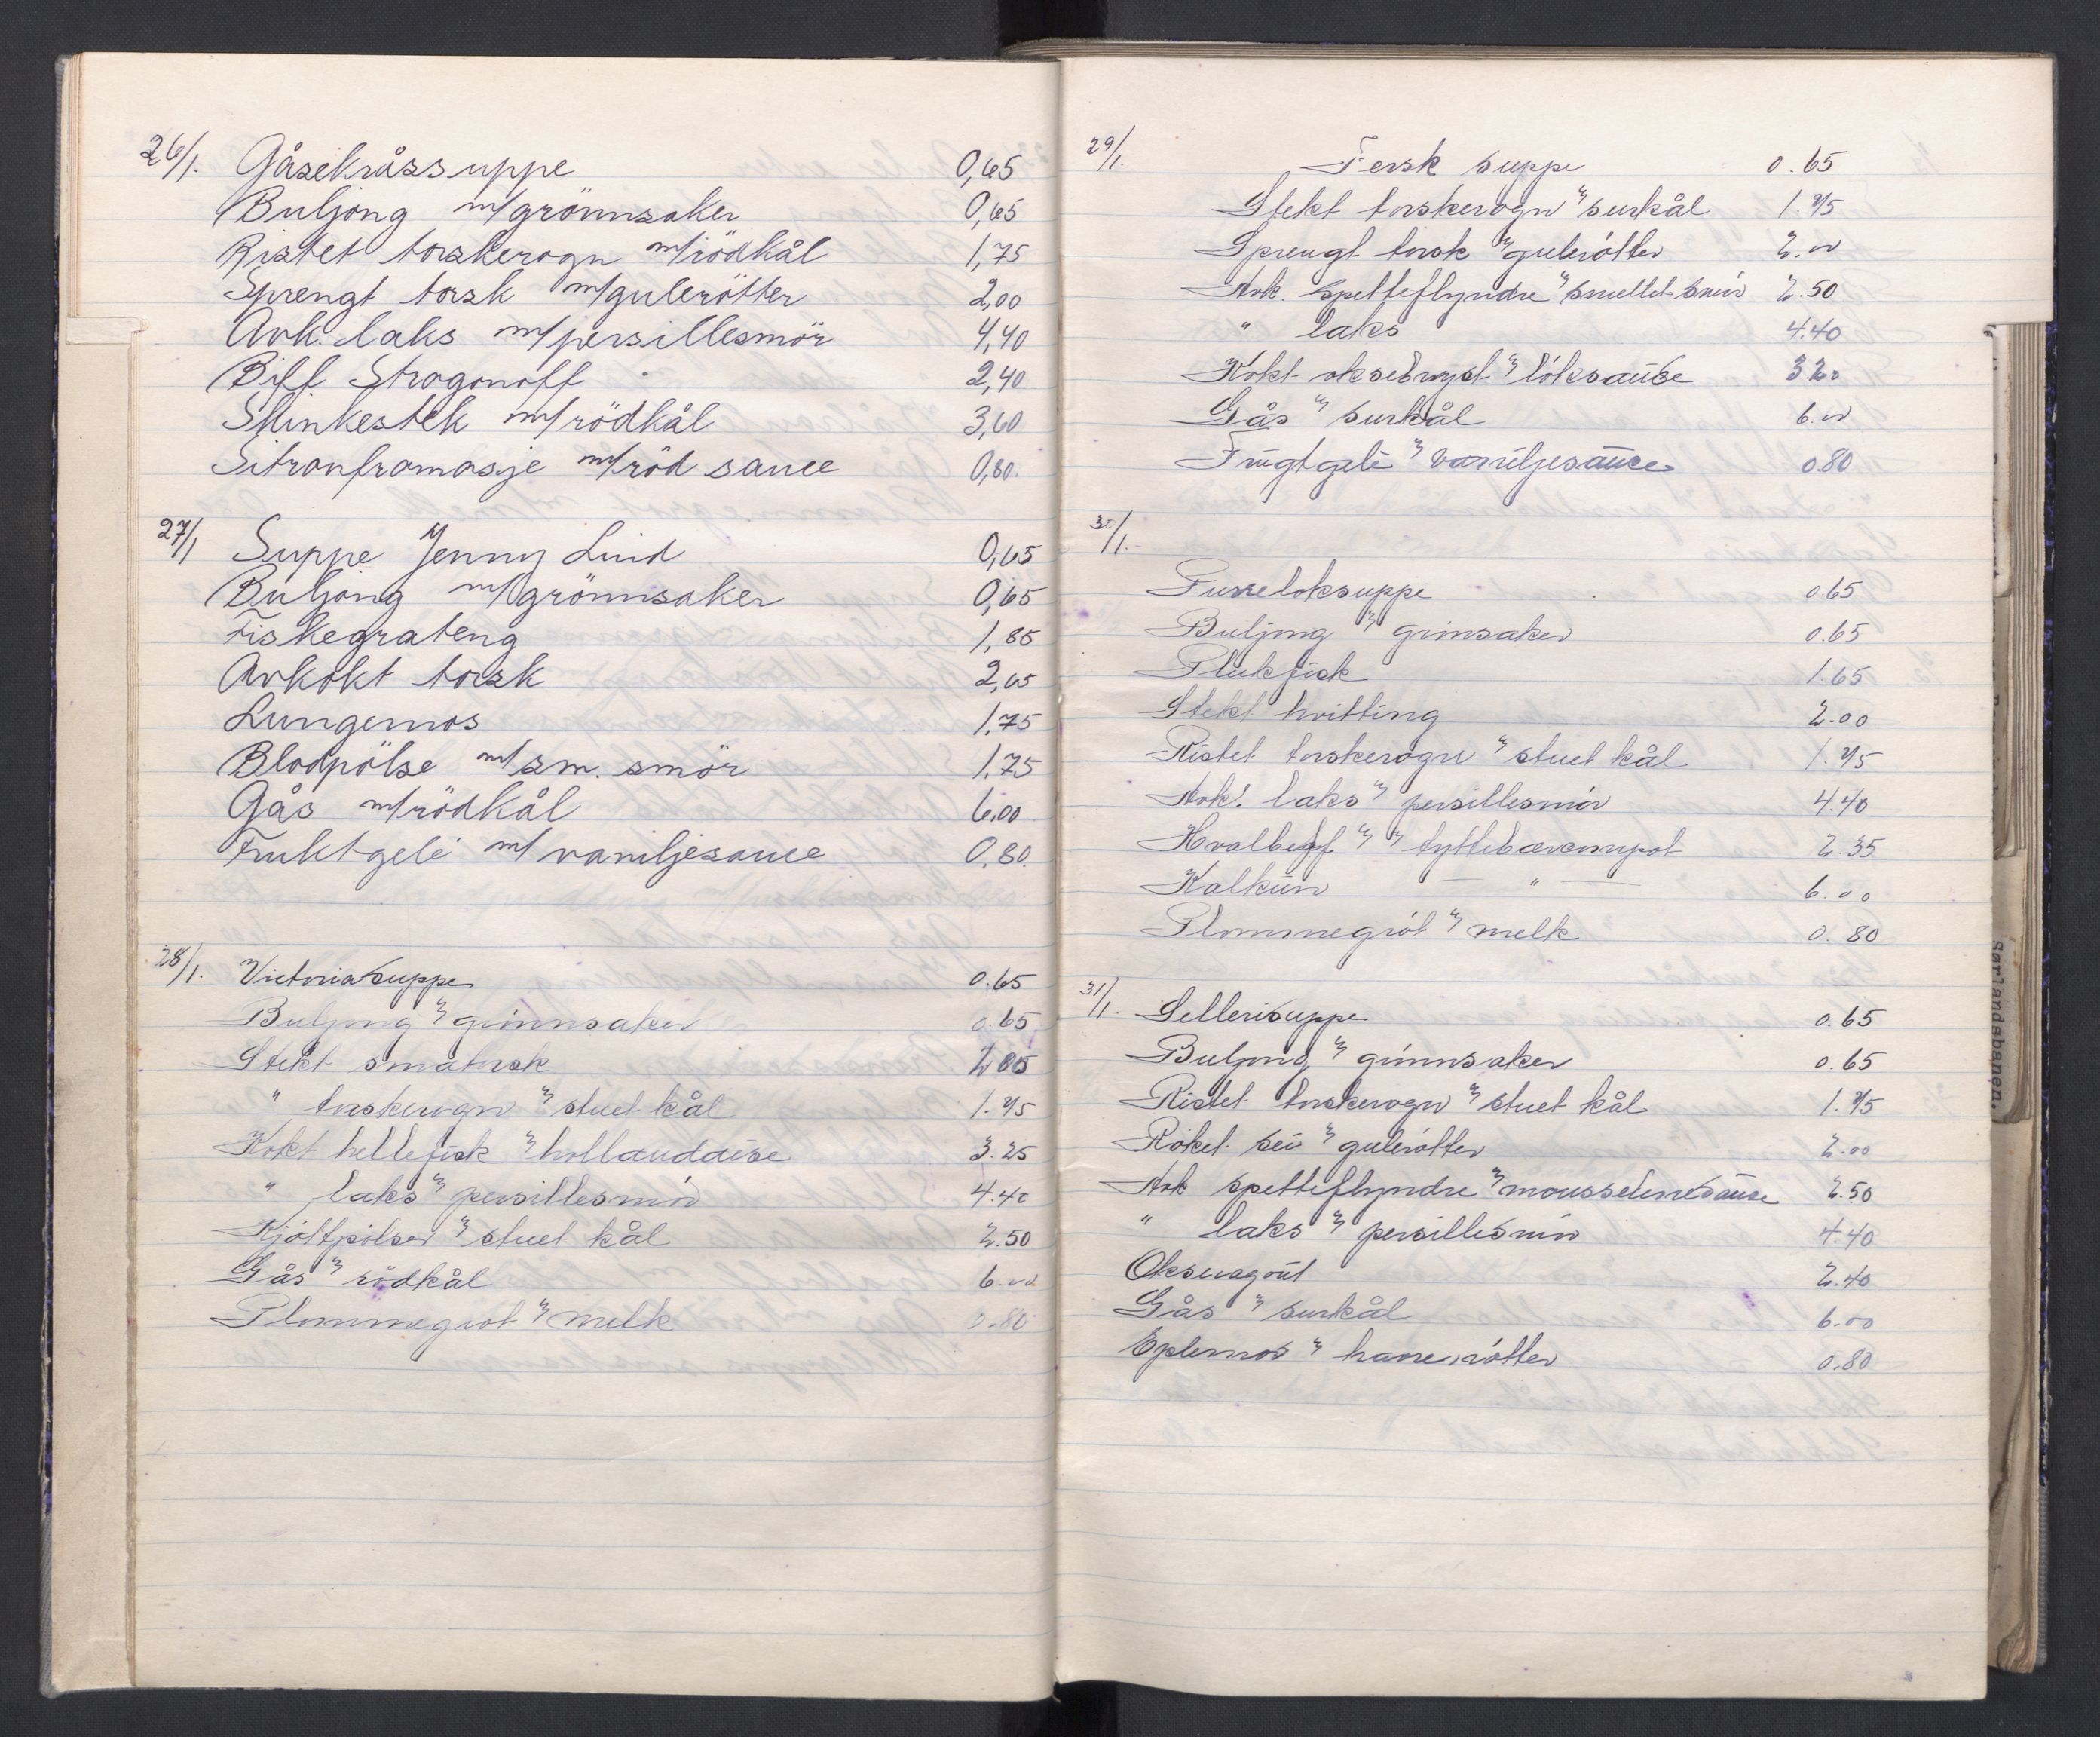 26/1. Gåsekråssuppe 0,65
Buljong m/grönnsaker 0,65
Ristet torskerogn m/rödkål 1,75
Sprengt torsk m/gulerötter 2,00
Avk. laks m/persillesmör 4,40
Biff Strogonoff 2,40
Skinkestek m/rödkål 3,60
Sitronfromasje m/röd sauce 0,80.
27/1 Suppe Jenny Lind 0,65
Buljong m/grönnsaker 0,65
Fiskegrateng 1,85
Avkokt torsk 2,65
Lungemos 1.75
Blodpölse m/sm. smör 1.75
Gås m/rödkål 6.00
Fruktgelé m/ vaniljesauce 0,80.
28/1. Victoriasuppe 0.65
Buljong m/ grönnsaker 0.65
Stekt småtorsk
" torskerogn m/ stuet kål 1.75
Kokt hellefisk m/ hollandaise 3.25
" laks m/ persillesmör 4.40
Kjöttpölser m/ stuet kål 2.50
Gås m/ rödkål 6.00
Plommegröt m/ melk 0.80
29/1. Fersk suppe 0.65
Stekt torskerogn m/ surkål 1.75
Sprengt torsk m/ gulerötter 2.00
Avk. spetteflyndre m/ smeltet smör 2.50
" laks 4.40
Kokt oksebryst m/ löksause 3 20
Gås m/ surkål 6.00
Frugtgelé m/ vaniljesauce 0.80
30/1.
Purreloksuppe 0.65
Buljong m/ grönsaker 0.65
Plukfisk 1.65
Stekt hvitting 2.00
Ristet torskerogn m/ stuet kål 1.75
Avk. laks m/ persillesmör 4.40
Hvalbeff m/ tyttebærcompot 2.35
Kalkun — " — 6.00
Plommegröt m/ melk 0.80
31/1. Sellerisuppe 0.65
Buljong m/ grönnsaker 0.65
Ristet torskerogn m/ stuet kål 1.75
Röket sei m/ gulerötter 2.00
Avk spetteflyndre m/ mousselinesause 2.50
" laks m/ persillesmör 4.40
Okseragout 2.40
Gås m/ surkål 6.00
Eplemos m/ 0.80
Sørlandsbanen.